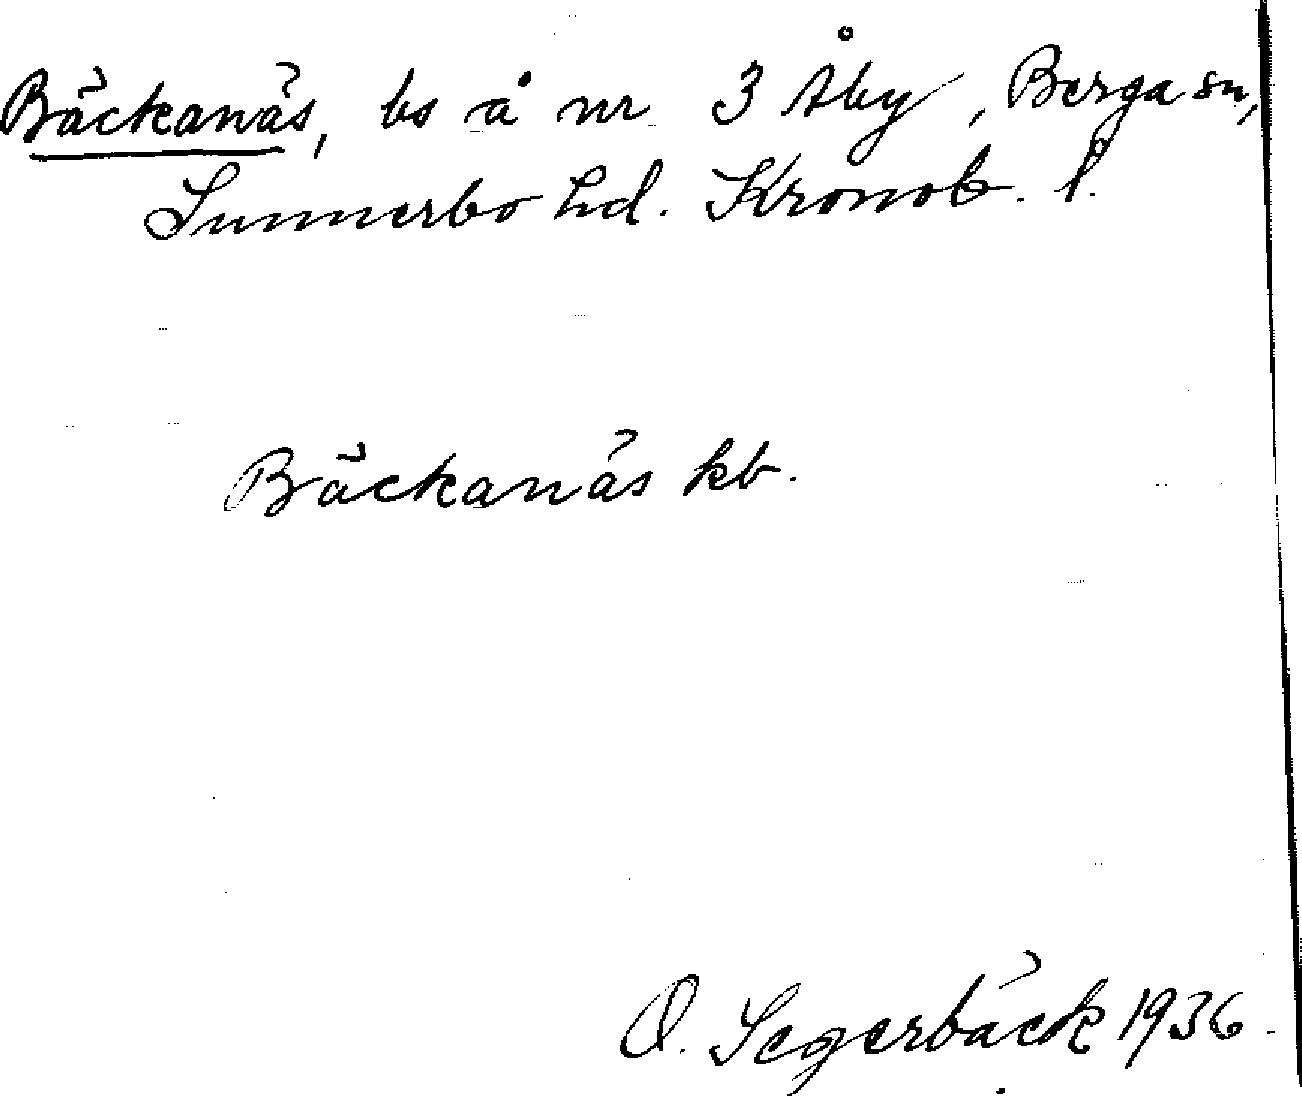 Bäckanäs, bs å nr 3 Åby, Berga sn,
Sunnerbo hd. Kronob. l.
Bäckanäs kb.
O. Segerbäck 1936